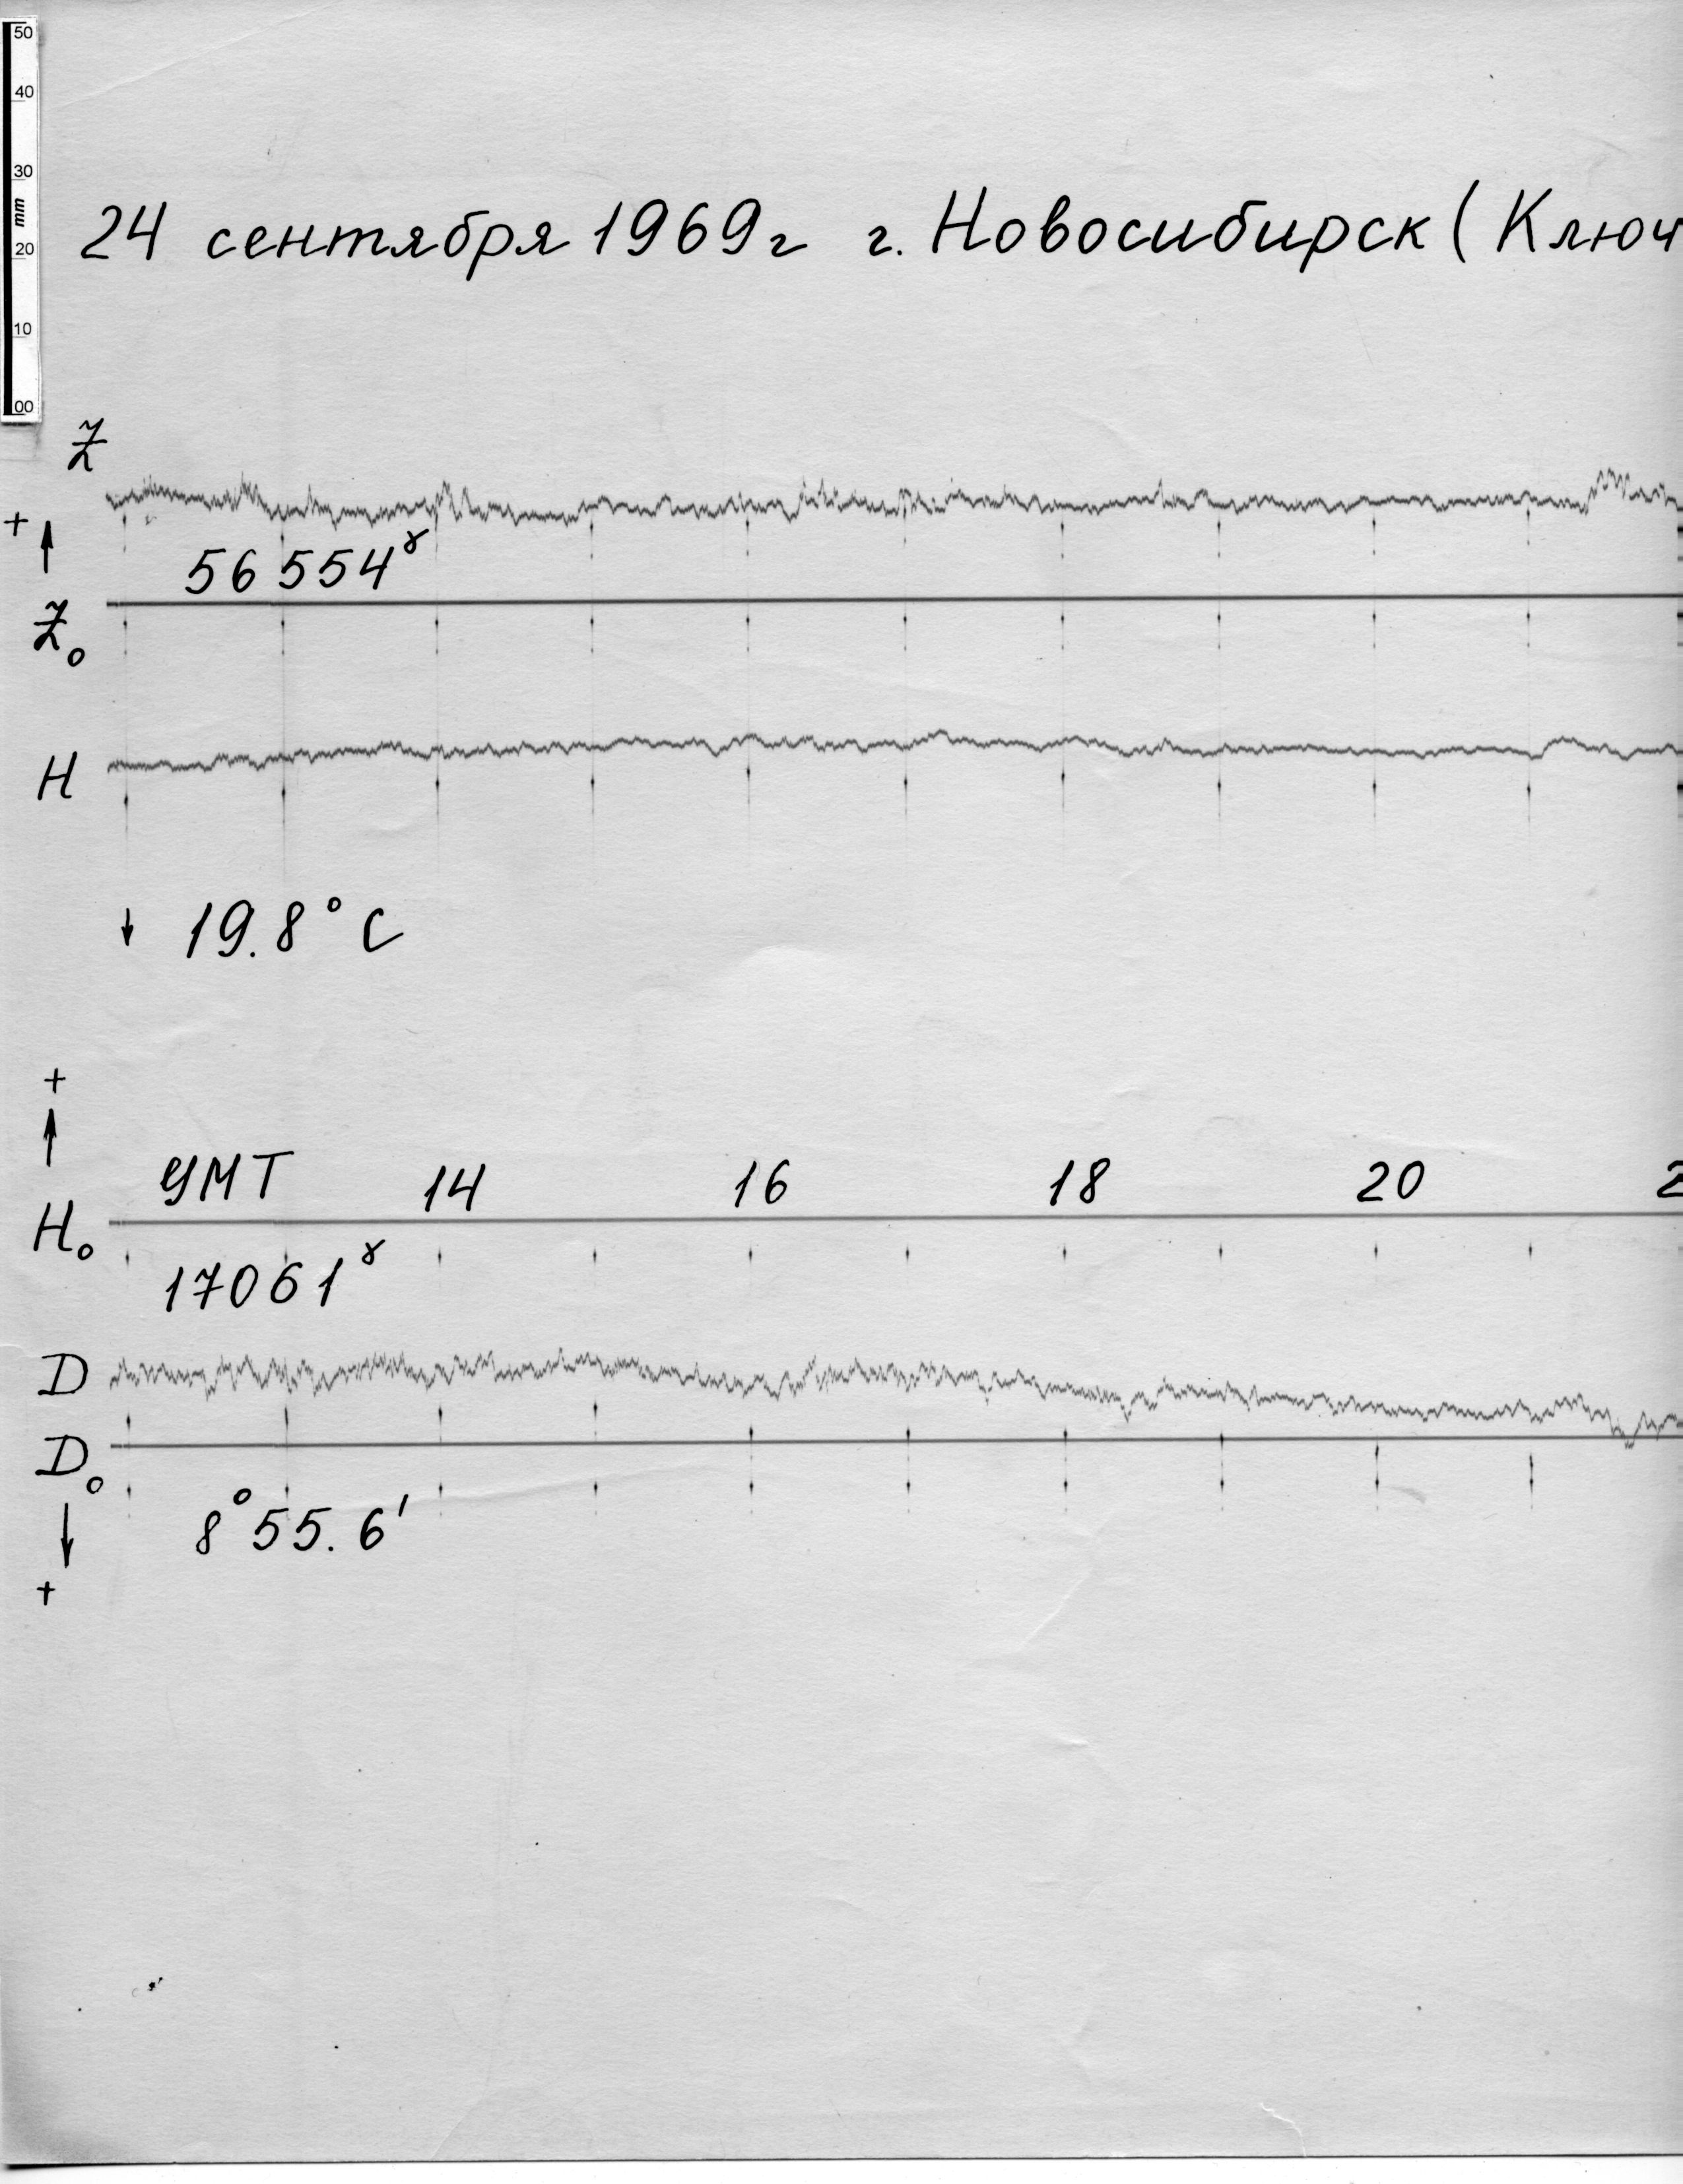 50
40
30
mm
20
10
00
24 сентября 1969г г. Новосибирск (Ключ
Z
+
56554γ
Z₀
H
19.8°C
+
УМТ 14 16 18 20 2
H₀
17061γ
D
D₀
8°55.6'
+